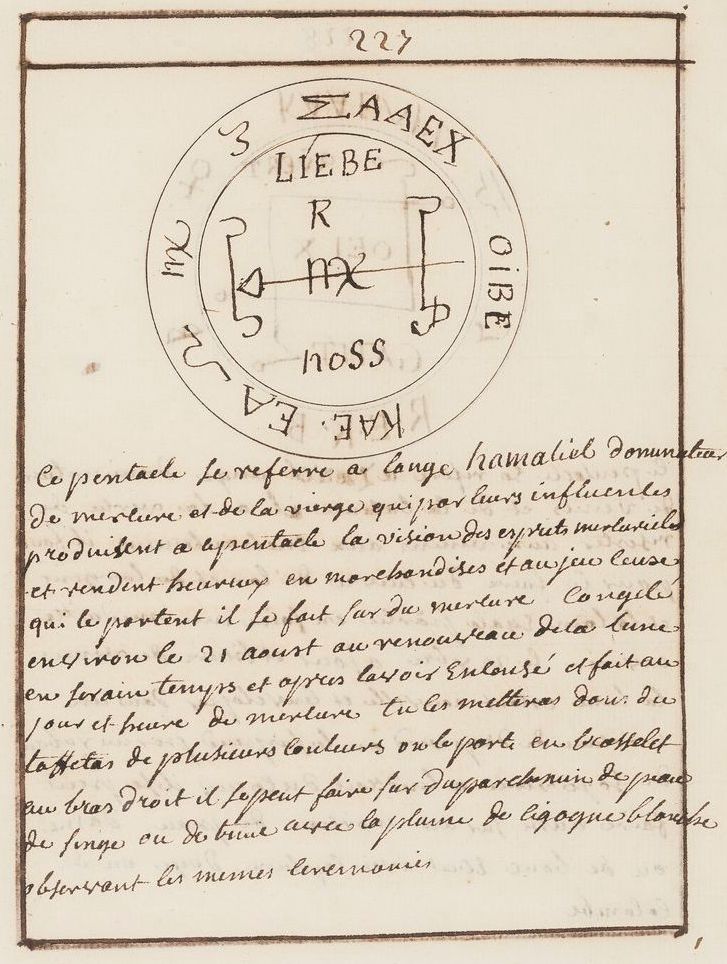 227
ΣAAEX
LIEBE
R
OiBE
noSS
KAE. EA
Ce pentacle se referre a lange hamaliel dominateur
de mercure et de la vierge qui par leurs influences
produisent a ce pentacle la vision des esprits mercuriels
et rendent heureux en marchandises et au jeu ceuse
qui le portent il se fait sur du mercure congelé
environ le 21 aoust au renouveau de la lune
en serain temps et apres lavoir Enlousé et fait au
jour et heure de mercure tu les metteras dans du
taffetas de plusieurs couleurs ou le porte en brasselet
au bras droit il se peut faire sur du parchemin de peau
de singe ou de avec la plume de cigogne blanche
observant les memes ceremonies